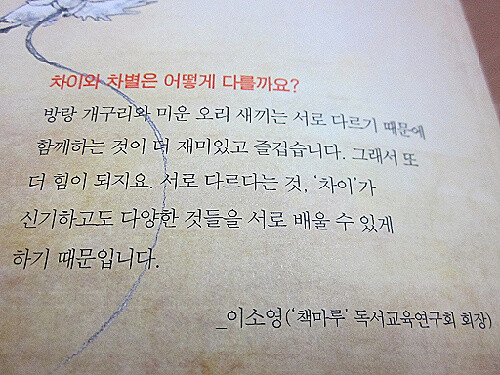 차이와 차별은 어떻게 다를까요?
방랑 개구리와 미운 오리 새끼는 서로 다르기 때문에
함께하는 것이 더 재미있고 즐겁습니다. 그래서 또
더 힘이 되지요. 서로 다르다는 것, ‘차이’가
신기하고도 다양한 것들을 서로 배울 수 있게
하기 때문입니다.
_이소영(‘책마루’ 독서교육연구회 회장)